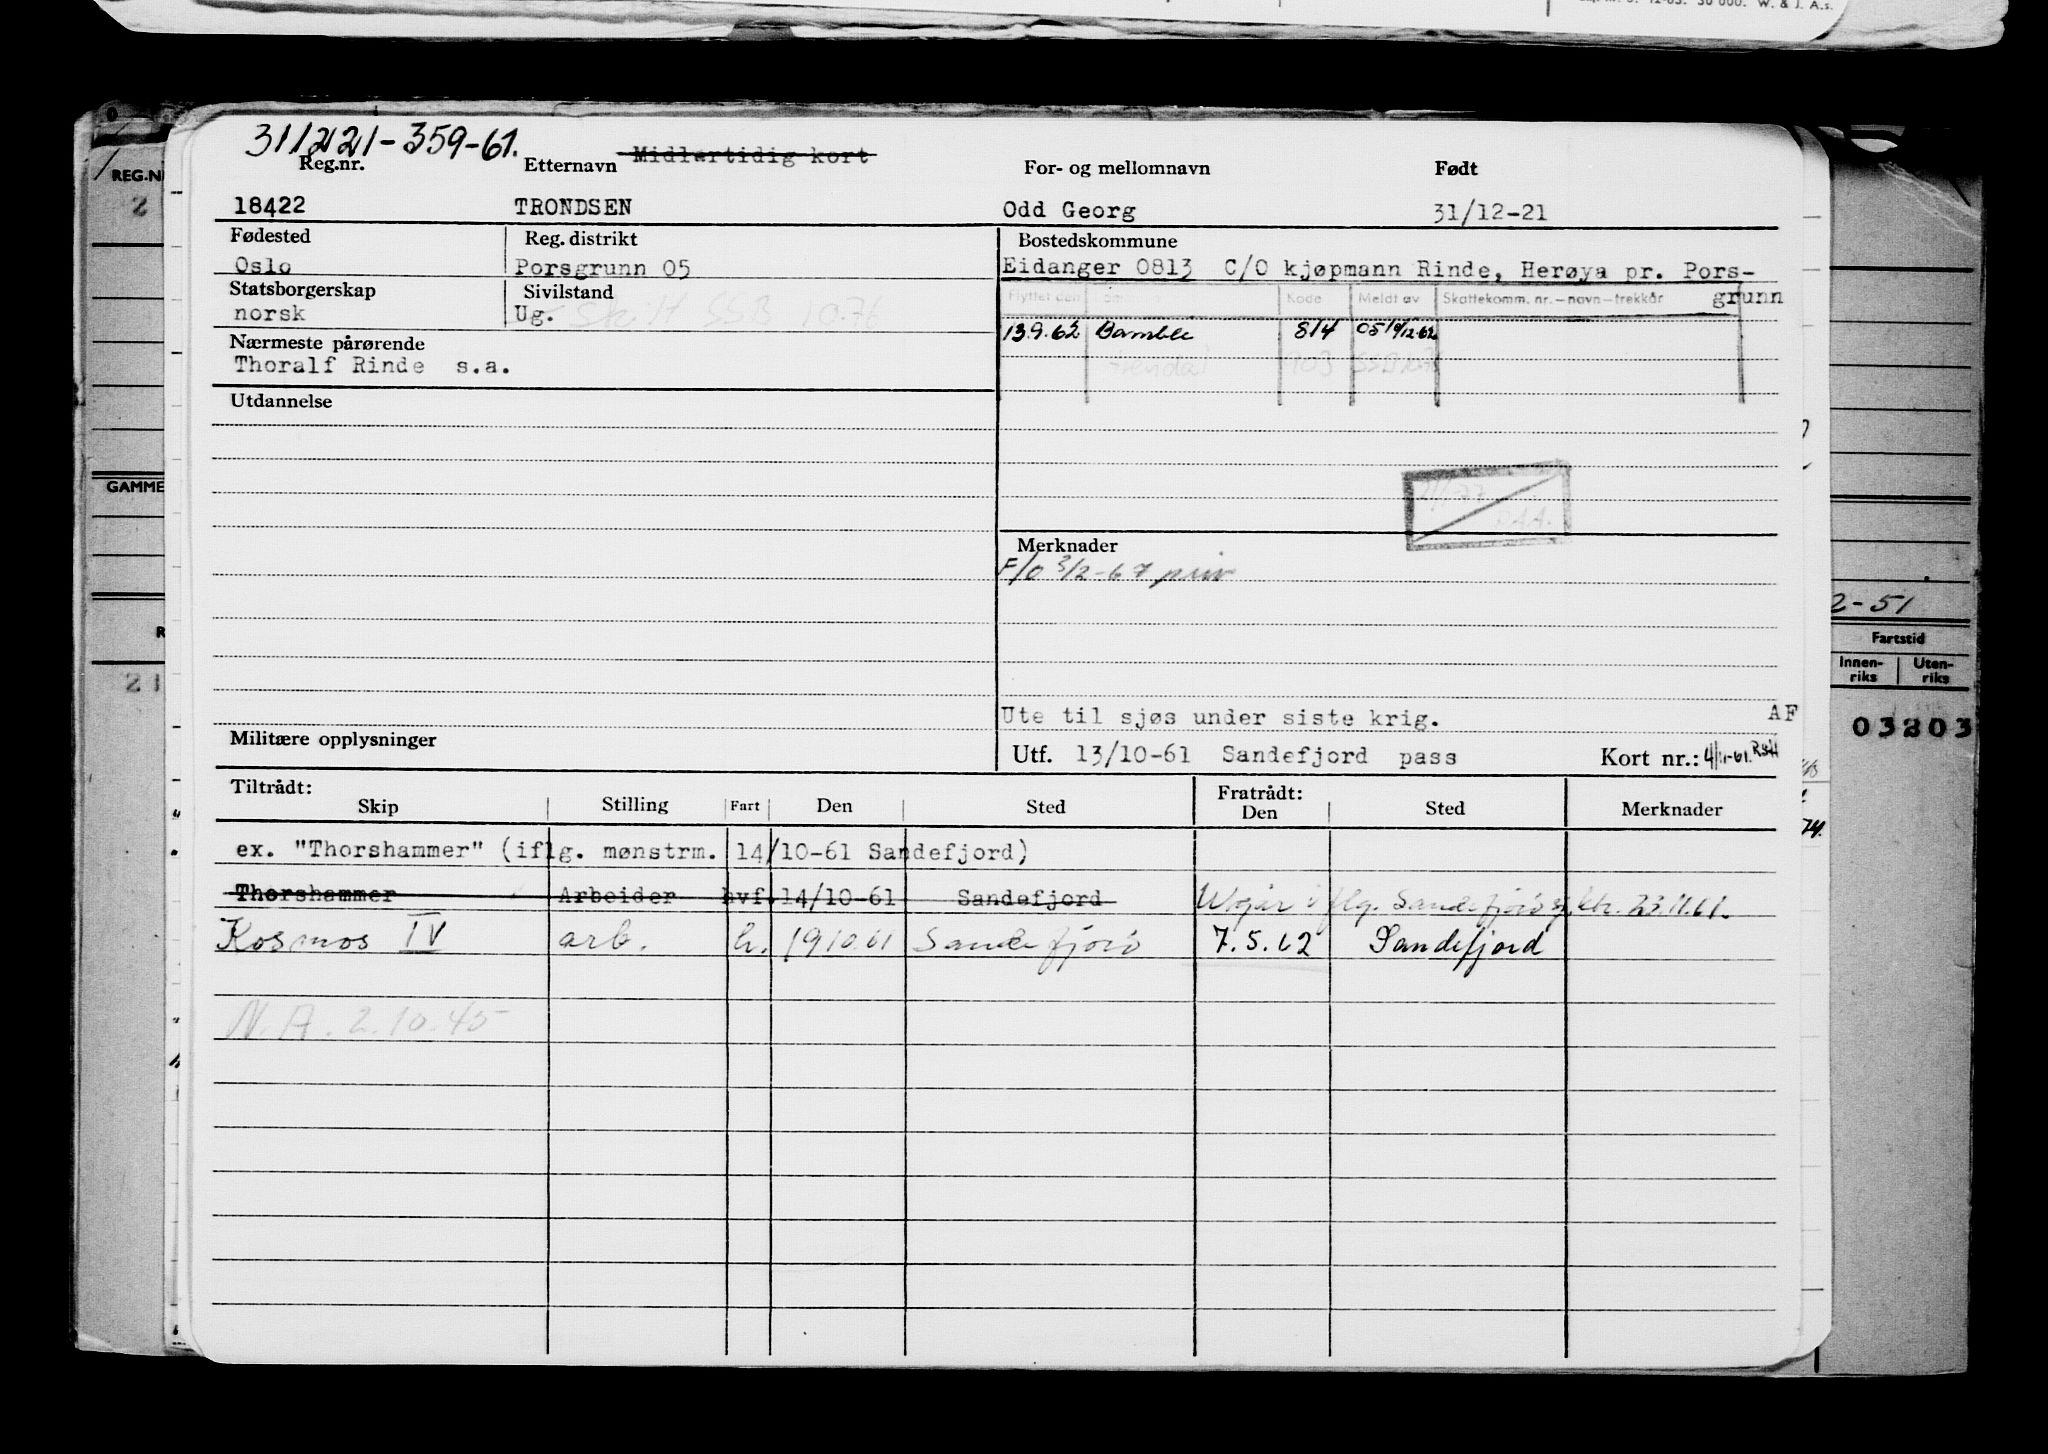 31/12 21-359-61.
Midlertidig kort
Reg.nr. Etternavn For- og mellomnavn Født
18422 TRONDSEN Odd Georg 31/12-21
Fødested Reg. distrikt Bostedskommune
Oslo Porsgrunn 05 Eidanger 0813 C/O kjøpmann Rinde, Herøya pr. Pors-
grunn
Statsborgerskap Sivilstand
norsk Ug.
Skilt SSB 10.76
Flyttet den Kode Meldt av Skattekomm. nr.-navn-trekkår
13.9.62 Bamble 814 05 19/12.62
Nærmeste pårørende
Thoralf Rinde s.a.
Utdannelse
Merknader
F/O 3/2-67 priv
Ute til sjøs under siste krig. AF
Militære opplysninger
Utf. 13/10-61 Sandefjord pass Kort nr.:
Tiltrådt: Fratrådt:
Skip Stilling Fart Den Sted Den Sted Merknader
ex. "Thorshammer" (iflg. mønstrm. 14/10-61 Sandefjord)
Thorshammer Arbeider hvf. 14/10-61 Sandefjord Utgår iflg. Sandefjord sj. ktr. 23.11.61.
Kosmos IV arb. h. 19 10.61 Sandefjord 7.5.62 Sandefjord
N.A. 2.10.45
REG.NR
2
GAMME
21
2-51
Fartstid
Innen-
riks
Uten-
riks
03803
74.
12-63. 30 000. W. & J. A.s.